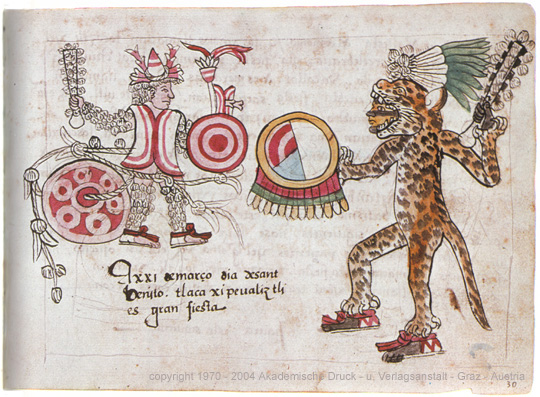 A xxi de março dia de sant
benito. tlaca xi peualiztli
es gran fiesta
copyright 1970 - 2004 Akademische Druck - u. Verlagsanstalt - Graz - Austria
30